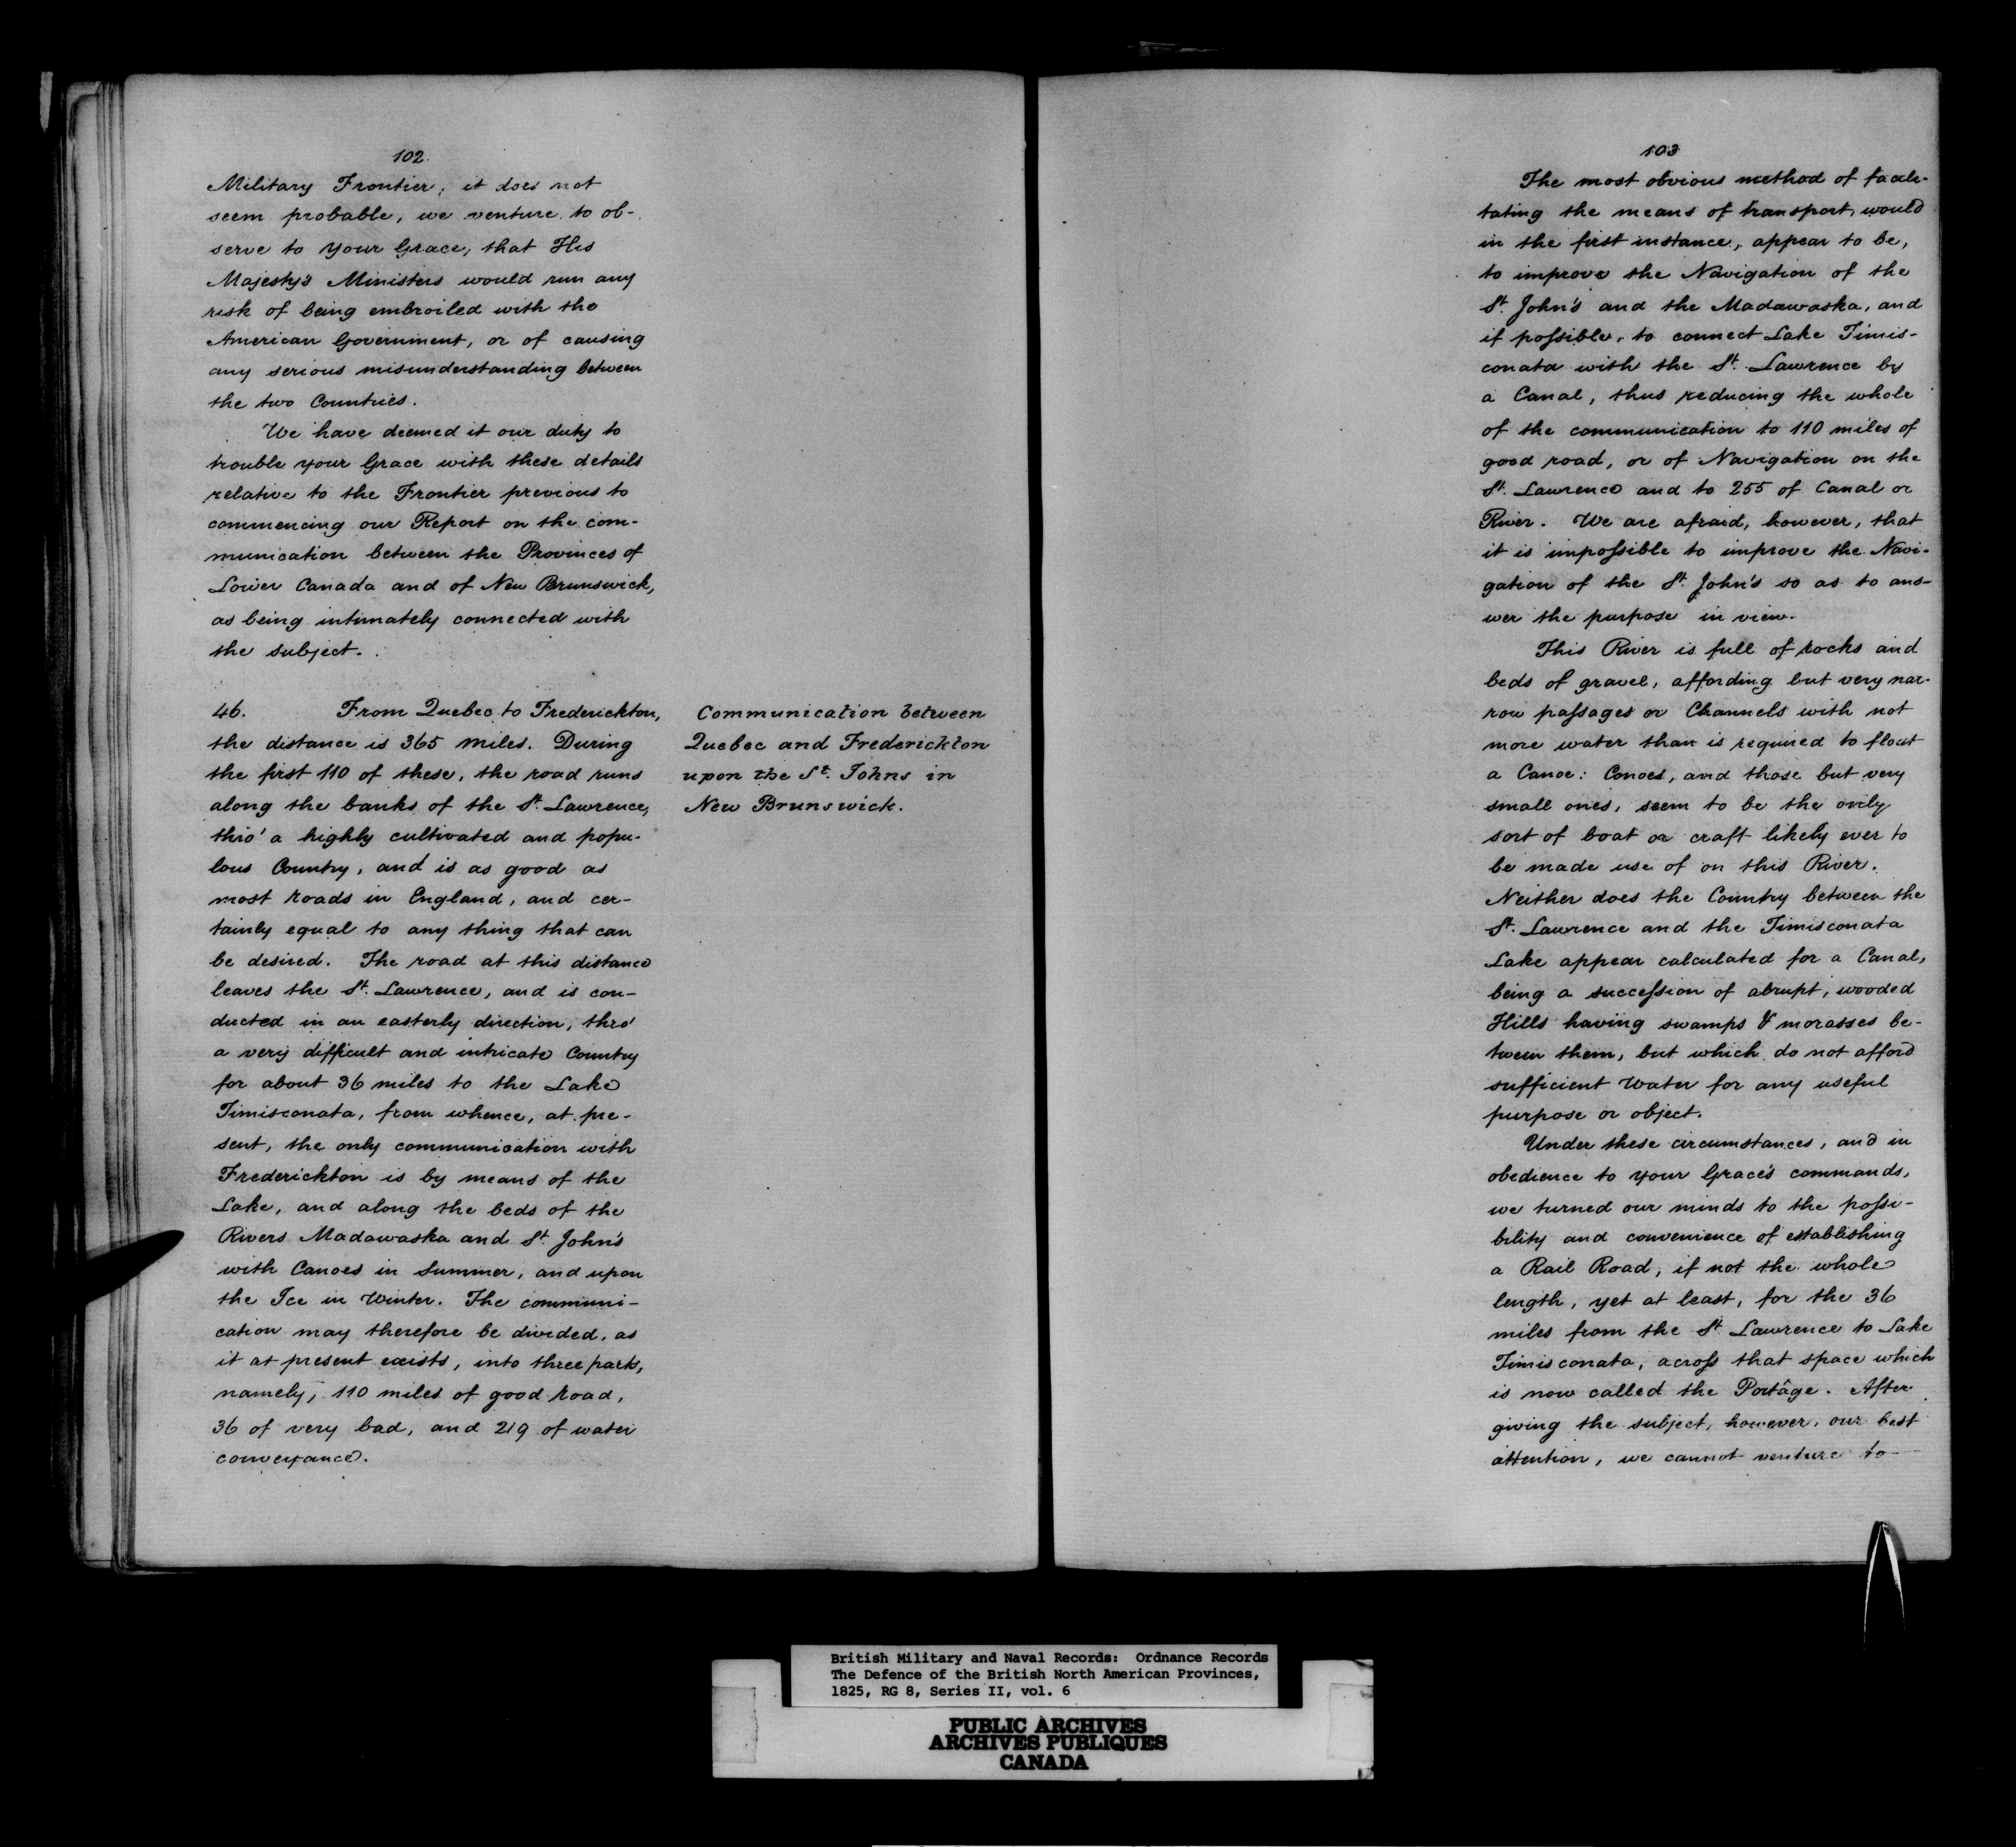 102
Military Frontier; it does not
seem probable, we venture to ob-
serve to your Grace, that His
Majesty's Ministers would run any
risk of being embroiled with the
American Government, or of causing
any serious misunderstanding between
the two Countries.
We have deemed it our duty to
trouble your Grace with these details
relative to the Frontier previous to
commencing our Report on the com-
munication between the Provinces of
Lower Canada and of New Brunswick,
as being intimately connected with
the subject.
46. From Quebec to Frederickton,
the distance is 365 miles. During
the first 110 of these, the road runs
along the banks of the St. Lawrence,
thro' a highly cultivated and popu-
lous Country, and is as good as
most roads in England, and cer-
tainly equal to any thing that can
be desired. The road at this distance
leaves the St. Lawrence, and is con-
ducted in an easterly direction, thro'
a very difficult and intricate Country
for about 36 miles to the Lake
Timisconata, from whence, at pre-
sent, the only communication with
Frederickton is by means of the
Lake, and along the beds of the
Rivers Madawaska and St. John's
with Canoes in Summer, and upon
the Ice in Winter. The communi-
cation may therefore be divided, as
it at present exists, into three parts,
namely, 110 miles of good road,
36 of very bad, and 219 of water
conveyance.
Communication between
Quebec and Frederickton
upon the St. Johns in
New Brunswick.
103
The most obvious method of facili-
tating the means of transport, would
in the first instance, appear to be,
to improve the Navigation of the
St. John's and the Madawaska, and
if possible, to connect Lake Timis-
conata with the St. Lawrence by
a Canal, thus reducing the whole
of the communication to 110 miles of
good road, or of Navigation on the
St. Lawrence and to 255 of Canal or
River. We are afraid, however, that
it is impossible to improve the Navi-
gation of the St. John's so as to ans-
wer the purpose in view.
This River is full of rocks and
beds of gravel, affording but very nar-
row passages or Channels with not
more water than is required to float
a Canoe: Conoes, and those but very
small ones, seem to be the only
sort of boat or craft likely ever to
be made use of on this River.
Neither does the Country between the
St. Lawrence and the Timisconata
Lake appear calculated for a Canal,
being a succession of abrupt, wooded
Hills having swamps & morasses be-
tween them, but which do not afford
sufficient Water for any useful
purpose or object.
Under these circumstances, and in
obedience to your Grace's commands,
we turned our minds to the possi-
bility and convenience of establishing
a Rail Road, if not the whole
length, yet at least, for the 36
miles from the St. Lawrence to Lake
Timisconata, across that space which
is now called the Portâge. After
giving the subject, however, our best
attention, we cannot venture to
British Military and Naval Records: Ordnance Records
The Defence of the British North American Provinces,
1825, RG 8, Series II, vol. 6
PUBLIC ARCHIVES
ARCHIVES PUBLIQUES
CANADA